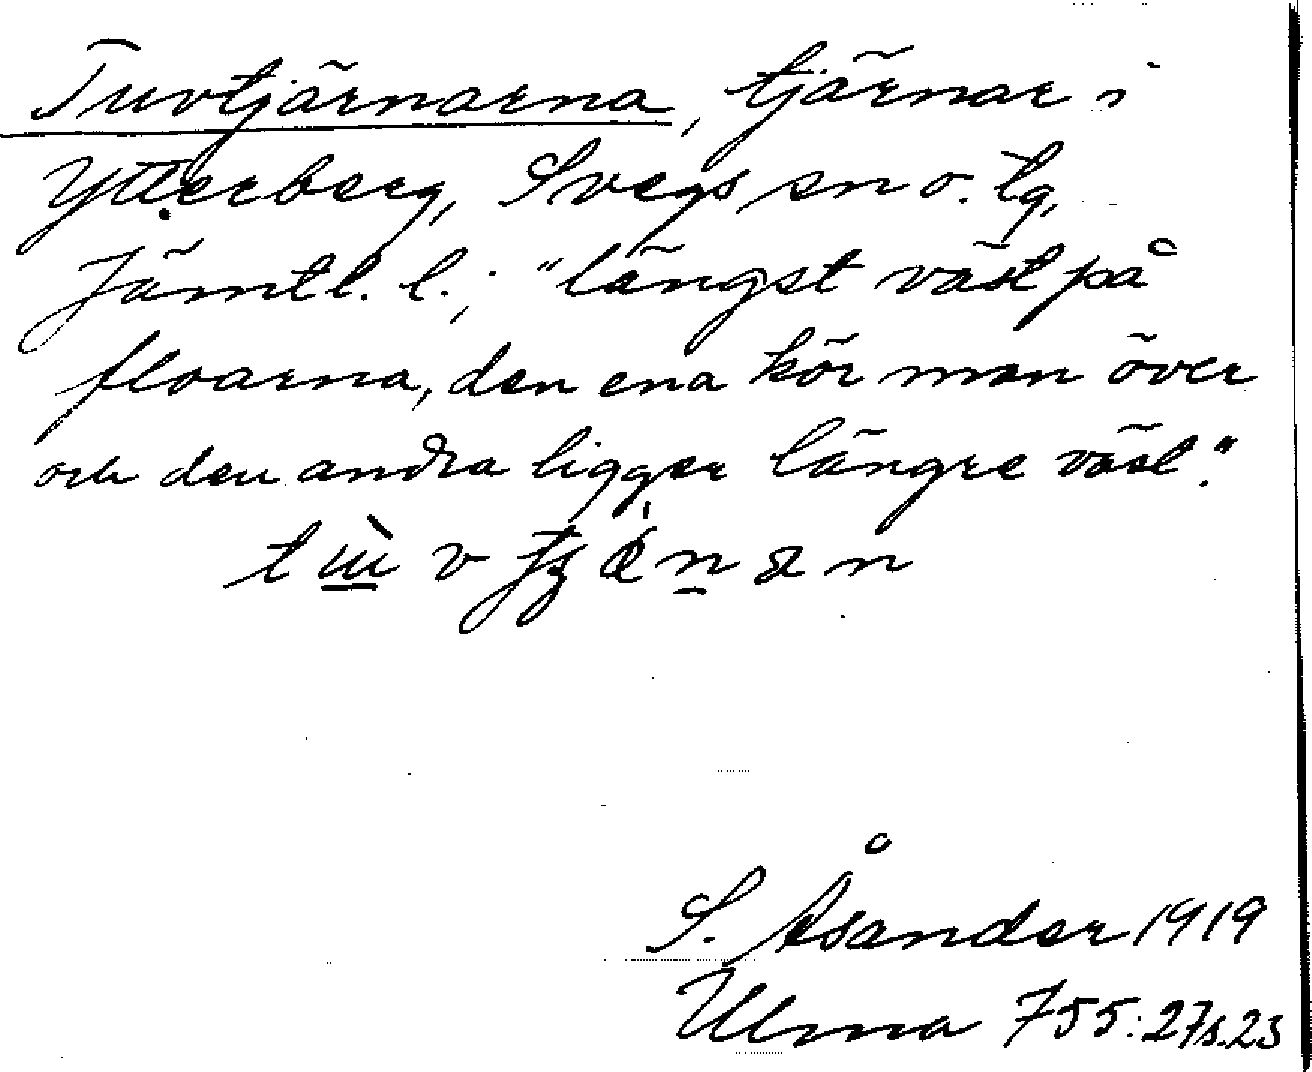 Tuvtjärnarna, tjärnar i
Ytterberg, Svegs sn o. tg,
Jämtl. l.; "längst väst på
floarna, den ena kör man över
och den andra ligger längre väst."
S. Åsander 1919
Ulma 755:27 s. 23